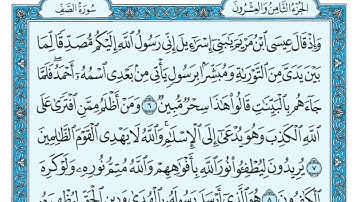 الجزء الثامن والعشرون سورة الصف
وَإِذْ قَالَ عِيسَى ابْنُ مَرْيَمَ يَٰبَنِىٓ إِسْرَٰٓءِيلَ إِنِّى رَسُولُ ٱللَّهِ إِلَيْكُم مُّصَدِّقًا لِّمَا
بَيْنَ يَدَىَّ مِنَ ٱلتَّوْرَىٰةِ وَمُبَشِّرًۢا بِرَسُولٍ يَأْتِى مِنۢ بَعْدِى ٱسْمُهُۥٓ أَحْمَدُ ۖ فَلَمَّا
جَآءَهُم بِٱلْبَيِّنَٰتِ قَالُوا۟ هَٰذَا سِحْرٌ مُّبِينٌ ٦ وَمَنْ أَظْلَمُ مِمَّنِ ٱفْتَرَىٰ عَلَى
ٱللَّهِ ٱلْكَذِبَ وَهُوَ يُدْعَىٰٓ إِلَى ٱلْإِسْلَٰمِ ۚ وَٱللَّهُ لَا يَهْدِى ٱلْقَوْمَ ٱلظَّٰلِمِينَ
٧ يُرِيدُونَ لِيُطْفِـُٔوا۟ نُورَ ٱللَّهِ بِأَفْوَٰهِهِمْ وَٱللَّهُ مُتِمُّ نُورِهِۦ وَلَوْ كَرِهَ
ٱلْكَٰفِرُونَ ٨ هُوَ ٱلَّذِىٓ أَرْسَلَ رَسُولَهُۥ بِٱلْهُدَىٰ وَدِينِ ٱلْحَقِّ لِيُظْهِرَهُۥ